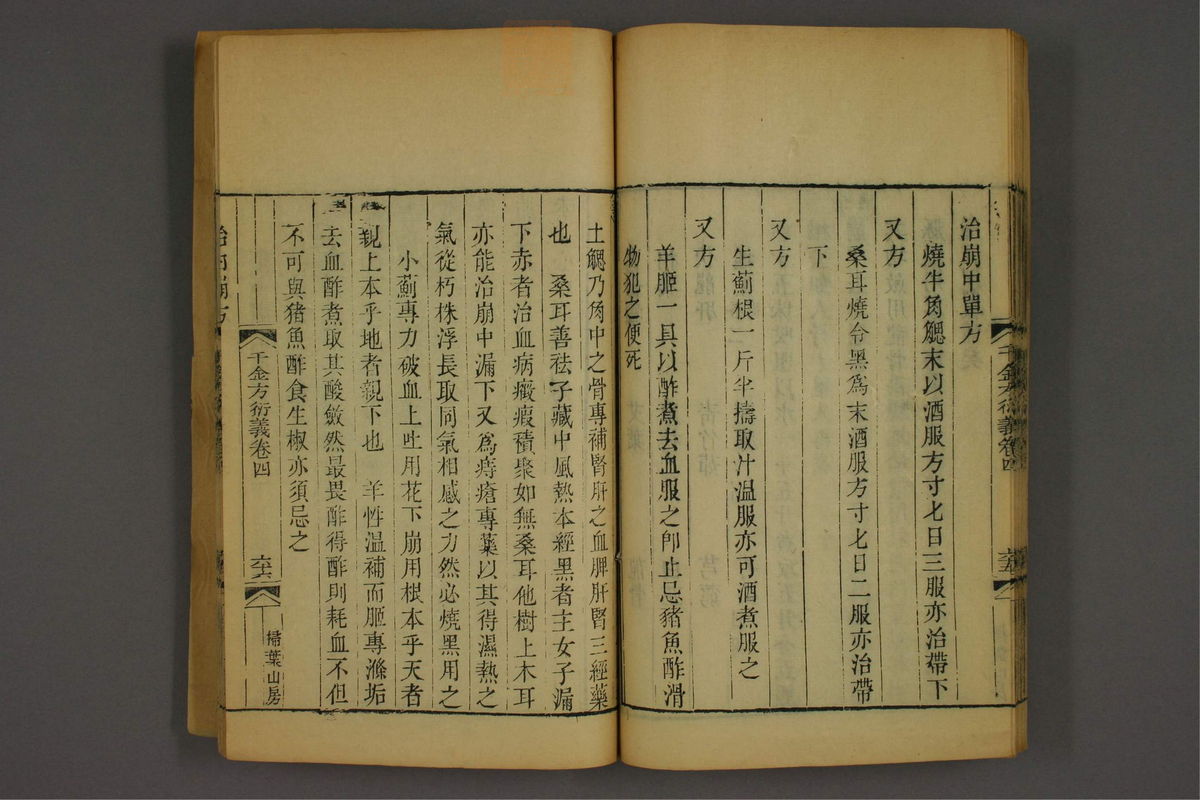 千金方衍義卷四
治崩中單方
燒牛角䚡末以酒服方寸七日三服亦治帶下
又方
桑耳燒令黑爲末酒服方寸七日二服亦治帶
下
又方
生薊根一斤半擣取汁溫服亦可酒煮服之
又方
羊胵一具以酢煮去血服之卽止忌豬魚酢滑
物犯之便死
土䚡乃角中之骨專補腎肝之血脾肝腎三經藥
也 桑耳善祛子藏中風熱本經黑者主女子漏
下赤者治血病癥瘕積聚如無桑耳他樹上木耳
亦能治崩中漏下又爲痔瘡專藥以其得濕熱之
氣從朽株浮長取同氣相感之力然必燒黑用之
小薊專力破血上吐用花下崩用根本乎天者
親上本乎地者親下也 羊性溫補而胵專滌垢
去血酢煮取其酸斂然最畏酢得酢則耗血不但
不可與猪魚酢食生椒亦須忌之
千金方衍義卷四
六六
掃葉山房